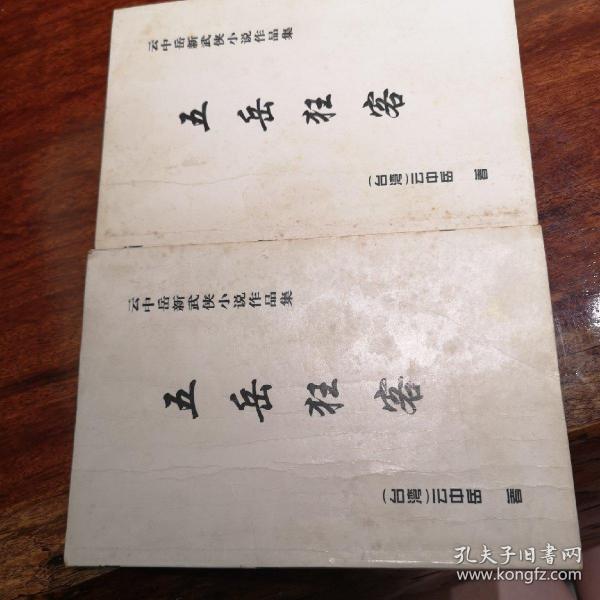 云中岳新武侠小说作品集
五岳狂客
(台湾)云中岳 著
云中岳新武侠小说作品集
五岳狂客
(台湾)云中岳 著
孔夫子旧书网
www.kongfz.com